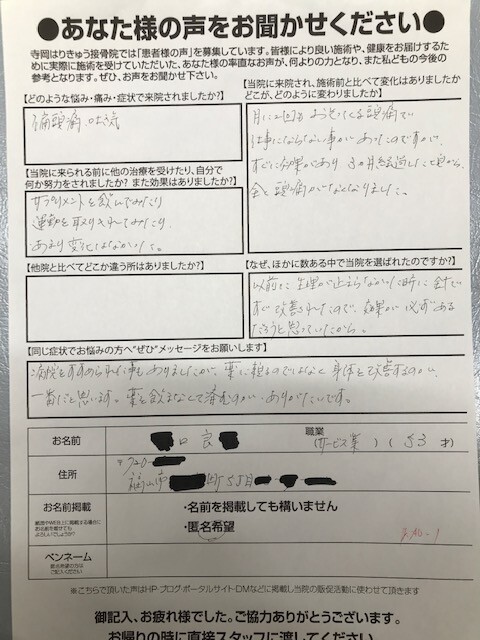 ●あなた様の声をお聞かせください●
寺岡はりきゅう接骨院では「患者様の声」を募集しています。皆様により良い施術や、健康をお届けするため
に実際に施術を受けていただいた、あなた様の率直なお声が、何よりの力となり、また私どもの今後の
参考となります。ぜひ、お声をお聞かせ下さい。
【どのような悩み・痛み・症状で来院されましたか?】
偏頭痛、吐き気
【当院に来られる前に他の治療を受けたり、自分で
何か努力をされましたか? また効果はありましたか?】
サプリメントを飲んでみたり
運動を取り入れてみたり
あまり変化はなかった。
【他院と比べてどこか違う所はありましたか?】
【当院に来院され、施術前と比べて変化はありましたか
どこが、どのように変わりましたか?】
月に2回もおそってくる頭痛で
仕事にならない事があったのですが、
すぐに効果があり 3ヶ月経過した頃から、
全く頭痛がなくなりました。
【なぜ、ほかに数ある中で当院を選ばれたのですか?】
以前に生理が止まらなかった時に 針で
すぐ改善されたので、効果が必ずある
だろうと思っていたから。
【同じ症状でお悩みの方へ"ぜひ"メッセージをお願いします】
病院をすすめられた事もありましたが、薬に頼るのではなく 身体を改善するのが、
一番だと思います。薬を飲まなくて済むのが ありがたいです。
お名前
口 良
職業
(サービス業) (53 才)
住所
〒720-
福山市 町5丁目
お名前掲載
紙面やWEB上に掲載する場合に
お名前を載せても
よろしいでしょうか?
・名前を掲載しても構いません
・匿名希望
ペンネーム
匿名希望の方は
ご記入ください
※こちらで頂いた声はHP・ブログ・ポータルサイト・DMなどに掲載し当院の販促活動に使わせて頂きます
御記入、お疲れ様でした。ご協力ありがとうございます。
お帰りの時に直接スタッフに渡してください